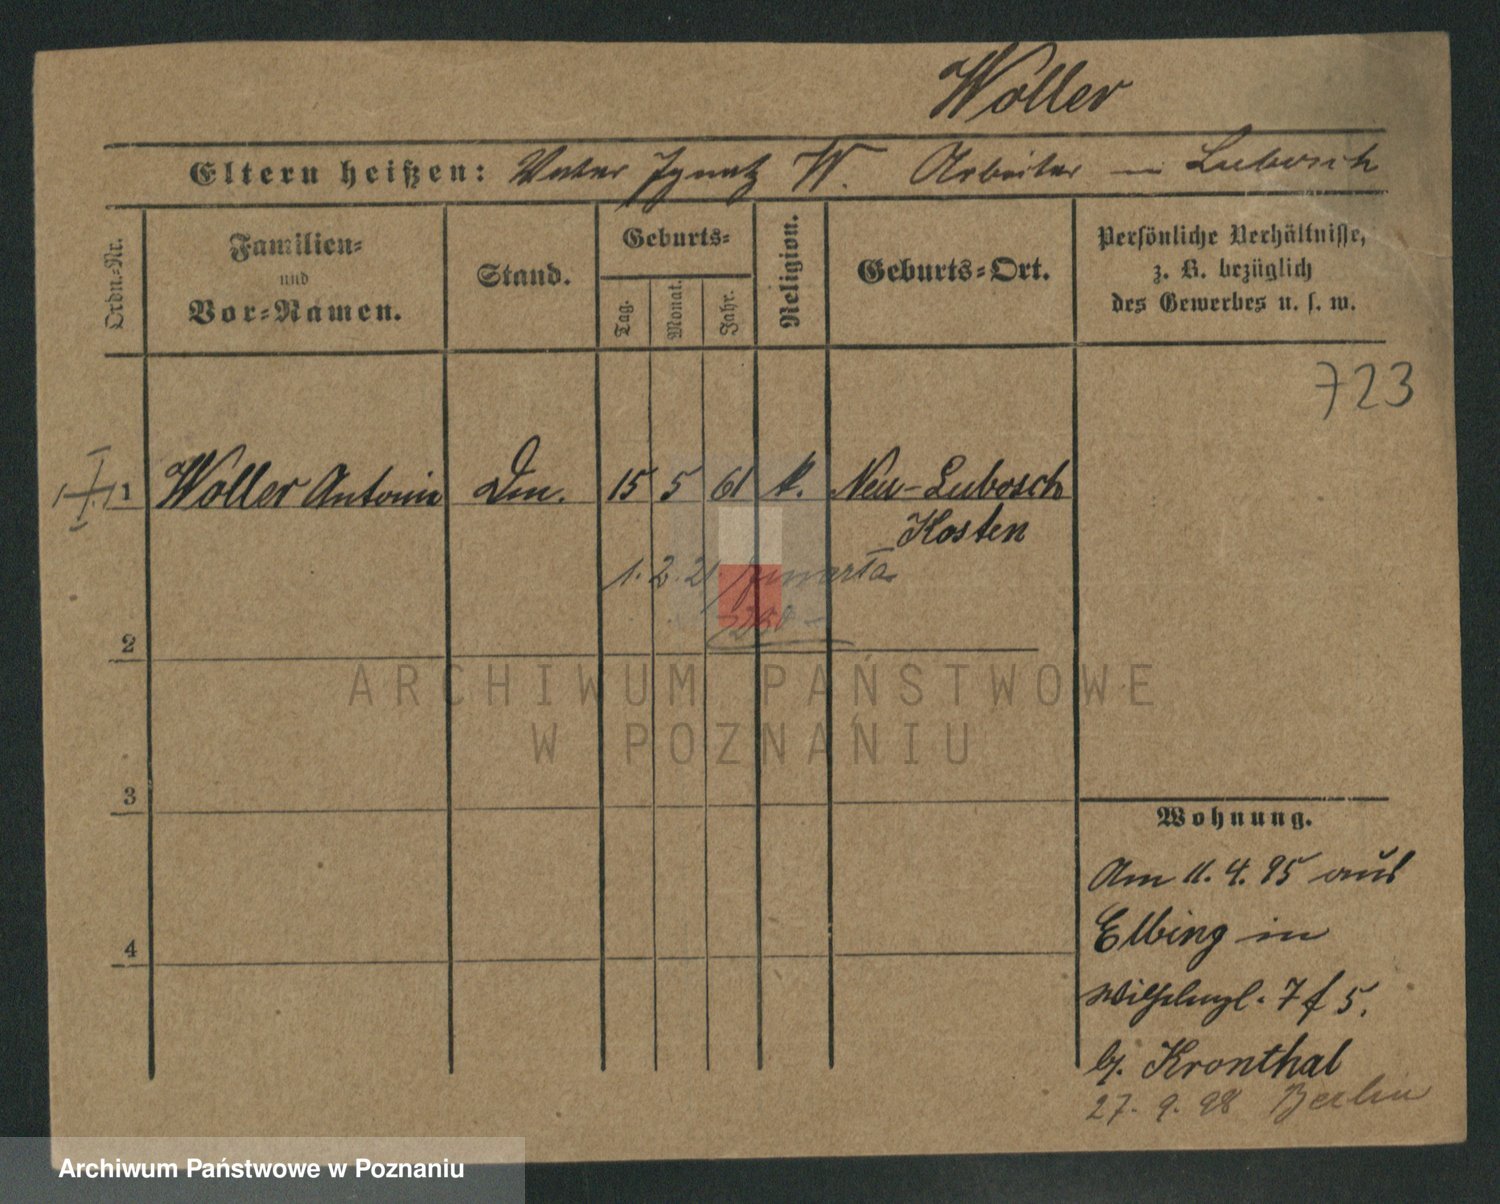 Woller
Eltern heißen: Vater Ignatz W. Arbeiter in Lubosch
Ordn.-Nr.
Familien-
und
Vor-Namen.
Stand.
Geburts-
Tag.
Monat.
Jahr.
Religion.
Geburts-Ort.
Persönliche Verhältnisse,
z. B. bezüglich
des Gewerbes u. s. w.
723
1 Woller Antonie Dm. 15 5 61 k. Neu-Lubosch
Kosten
1. 2. 21.
2
ARCHIWUM PAŃSTWOWE
W POZNANIU
3
4
Wohnung.
Am 11. 4. 95 aus
Elbing in
Wilhelmpl. 7 f 5.
b. Kronthal
27. 9. 98 Berlin
Archiwum Państwowe w Poznaniu